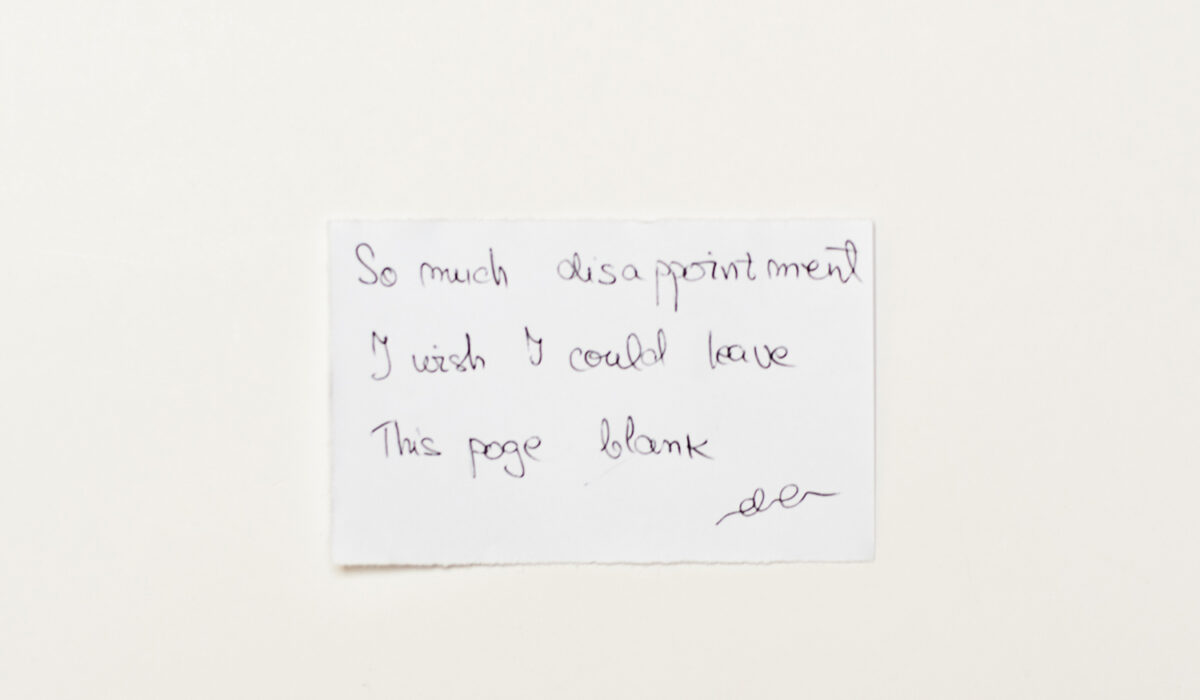 So much disappointment
I wish I could leave
This page blank